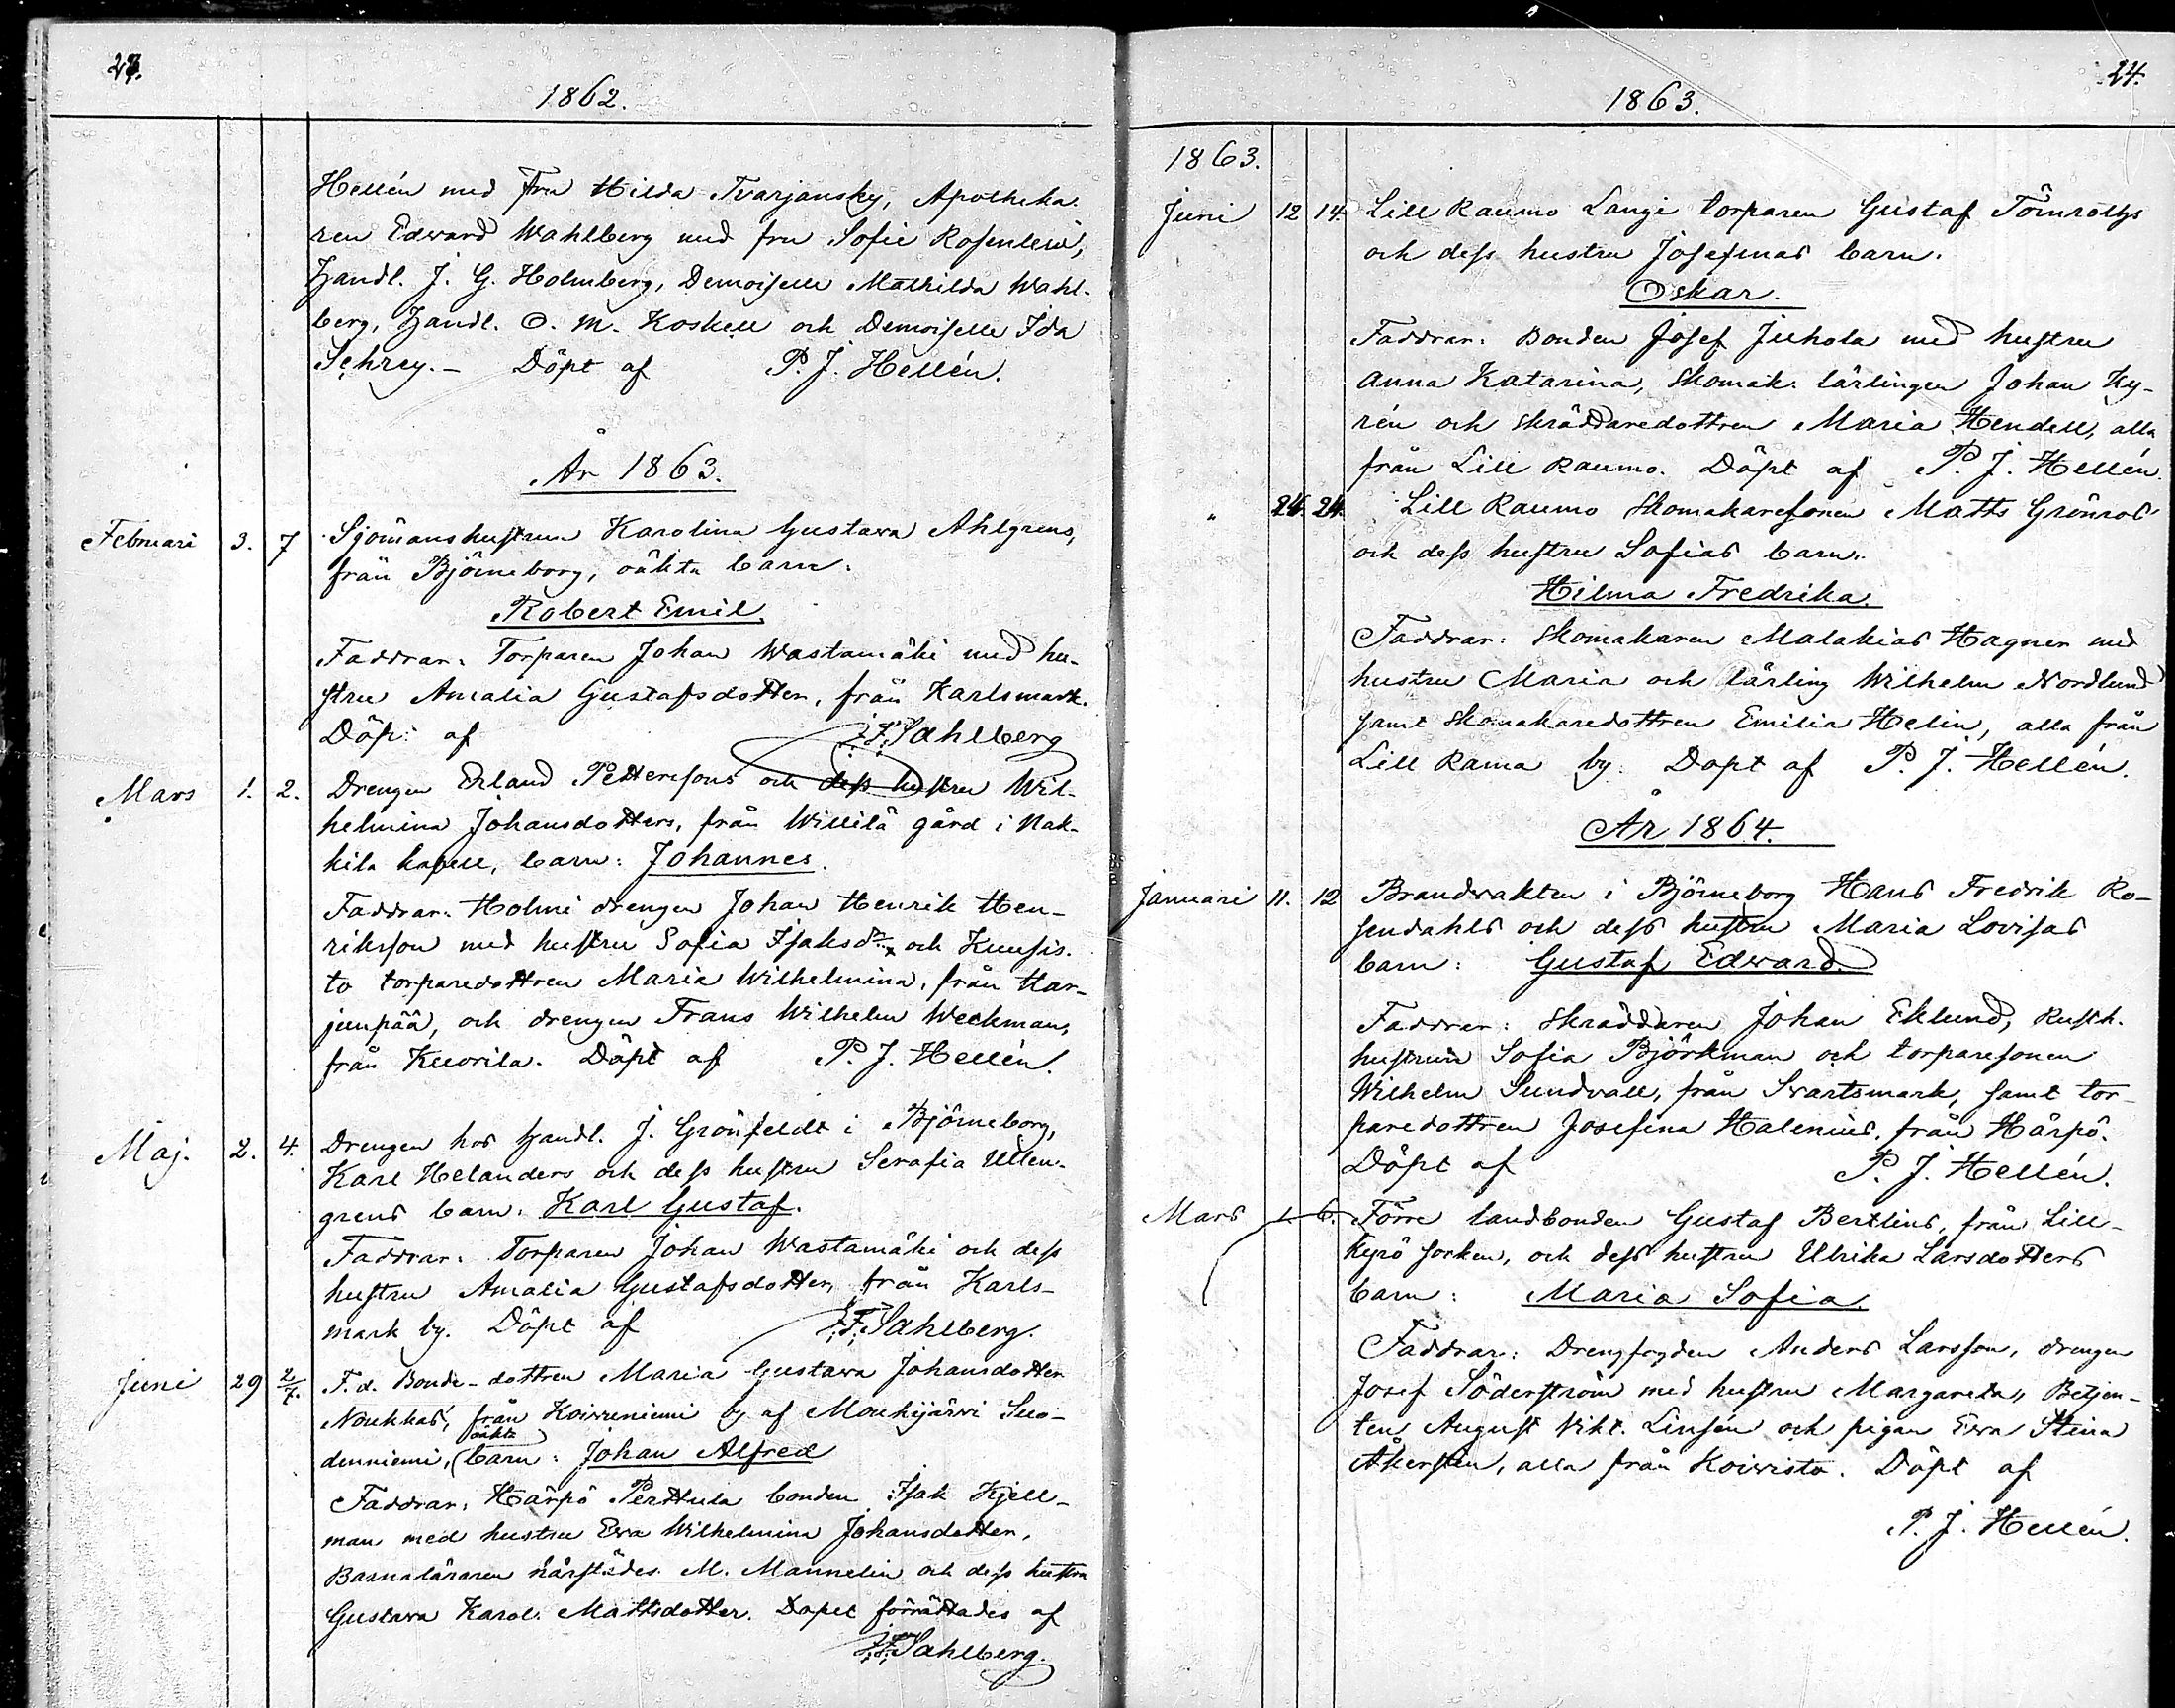 23.
1862.
Hellén med Fru Hilda Tvarjansky, Apotheka-
ren Edward Wahlberg med fru Sofie Rosenlew,
Handl. J. G. Holmberg, Demoiselle Mathilda Wahl-
berg, Handl. O. M. Koskell och Demoiselle Ida
Schrey. – Döpt af P. J. Hellén.
År 1863.
Februari 3. 7 Sjömanshustrun Karolina Gustava Ahlgrens,
från Björneborg, oäkta barn:
Robert Emil.
Faddrar: Torparen Johan Wastamäki med hu-
stru Amalia Gustafsdotter, från Karlsmark.
Döp: af J.F. Sahlberg
Mars 1. 2. Drengen Erland Petterssons och dess hustru Wil-
helmina Johansdotters, från Willilä gård i Nak-
kila kapell, barn: Johannes.
Faddrar: Holmi drengen Johan Henrik Hen-
riksson med hustru Sofia Isaksdr och Kuusis-
to torparedottren Maria Wilhelmina, från Har-
junpää, och drengen Frans Wilhelm Weckman,
från Kuorila. Döpt af P. J. Hellén.
Maj. 2. 4. Drengen hos Handl. J. Grönfeldt i Björneborg,
Karl Helanders och dess hustru Serafia Ullen-
grens barn: Karl Gustaf.
Faddrar: Torparen Johan Wastamäki och dess
hustru Amalia Gustafsdotter, från Karls-
mark by. Döpt af J.F. Sahlberg.
Juni 29 2/7. F. d. Bonde-dottren Maria Gustava Johansdotter
Noukkas, från Koivuniemi by af Mouhijärvi Suo-
oäkta
denniemi, barn: Johan Alfred
Faddrar: Härpö Perttula bonden Isak Kjell-
man med hustru Eva Wilhelmina Johansdotter,
Barnaläraren härstädes M. Mannelin och dess hustru
Gustava Karol. Mattsdotter. Dopet förrättades af
J.F. Sahlberg.
24.
1863.
1863.
Juni 12 14 Lill Raumo Langi torparen Gustaf Törnroths
och dess hustru Josefinas barn.
Oskar.
Faddrar: Bonden Josef Juhola med hustru
Anna Katarina, Skomak. lärlingen Johan Ky-
rén och skräddaredottren Maria Hendell, alla
från Lill Raumo. Döpt af P. J. Hellén.
" 24. 24. Lill Raumo Skomakaresonen Matts Grönros
och dess hustru Sofias barn:
Hilma Fredrika.
Faddrar: Skomakaren Malakias Hagner med
hustru Maria och lärling Wilhelm Nordlund
samt skomakaredottren Emilia Helin, alla från
Lill Rama by. Dopt af P. J. Hellén.
År 1864.
Januari 11. 12 Brandvakten i Björneborg Hans Fredrik Ro-
sendahls och dess hustru Maria Lovisas
barn: Gustaf Edward.
Faddrar: Skräddaren Johan Eklund, Rusth.
hustrun Sofia Björkman och torparesonen
Wilhelm Sundvall, från Svartsmark, samt tor-
paredottren Josefina Halenius, från Härpö.
Döpt af P. J. Hellén.
Mars 1. 6. Förre landbonden Gustaf Bertlins, från Lill-
Kyrö socken, och dess hustru Ulrika Larsdotters
barn: Maria Sofia.
Faddrar: Drengfogden Anders Larsson, drengen
Josef Söderström med hustru Margareta, Betjen-
ten August Vikt. Linsén och pigan Eva Stina
Åkerstén, alla från Koivisto. Döpt af
P. J. Hellén.